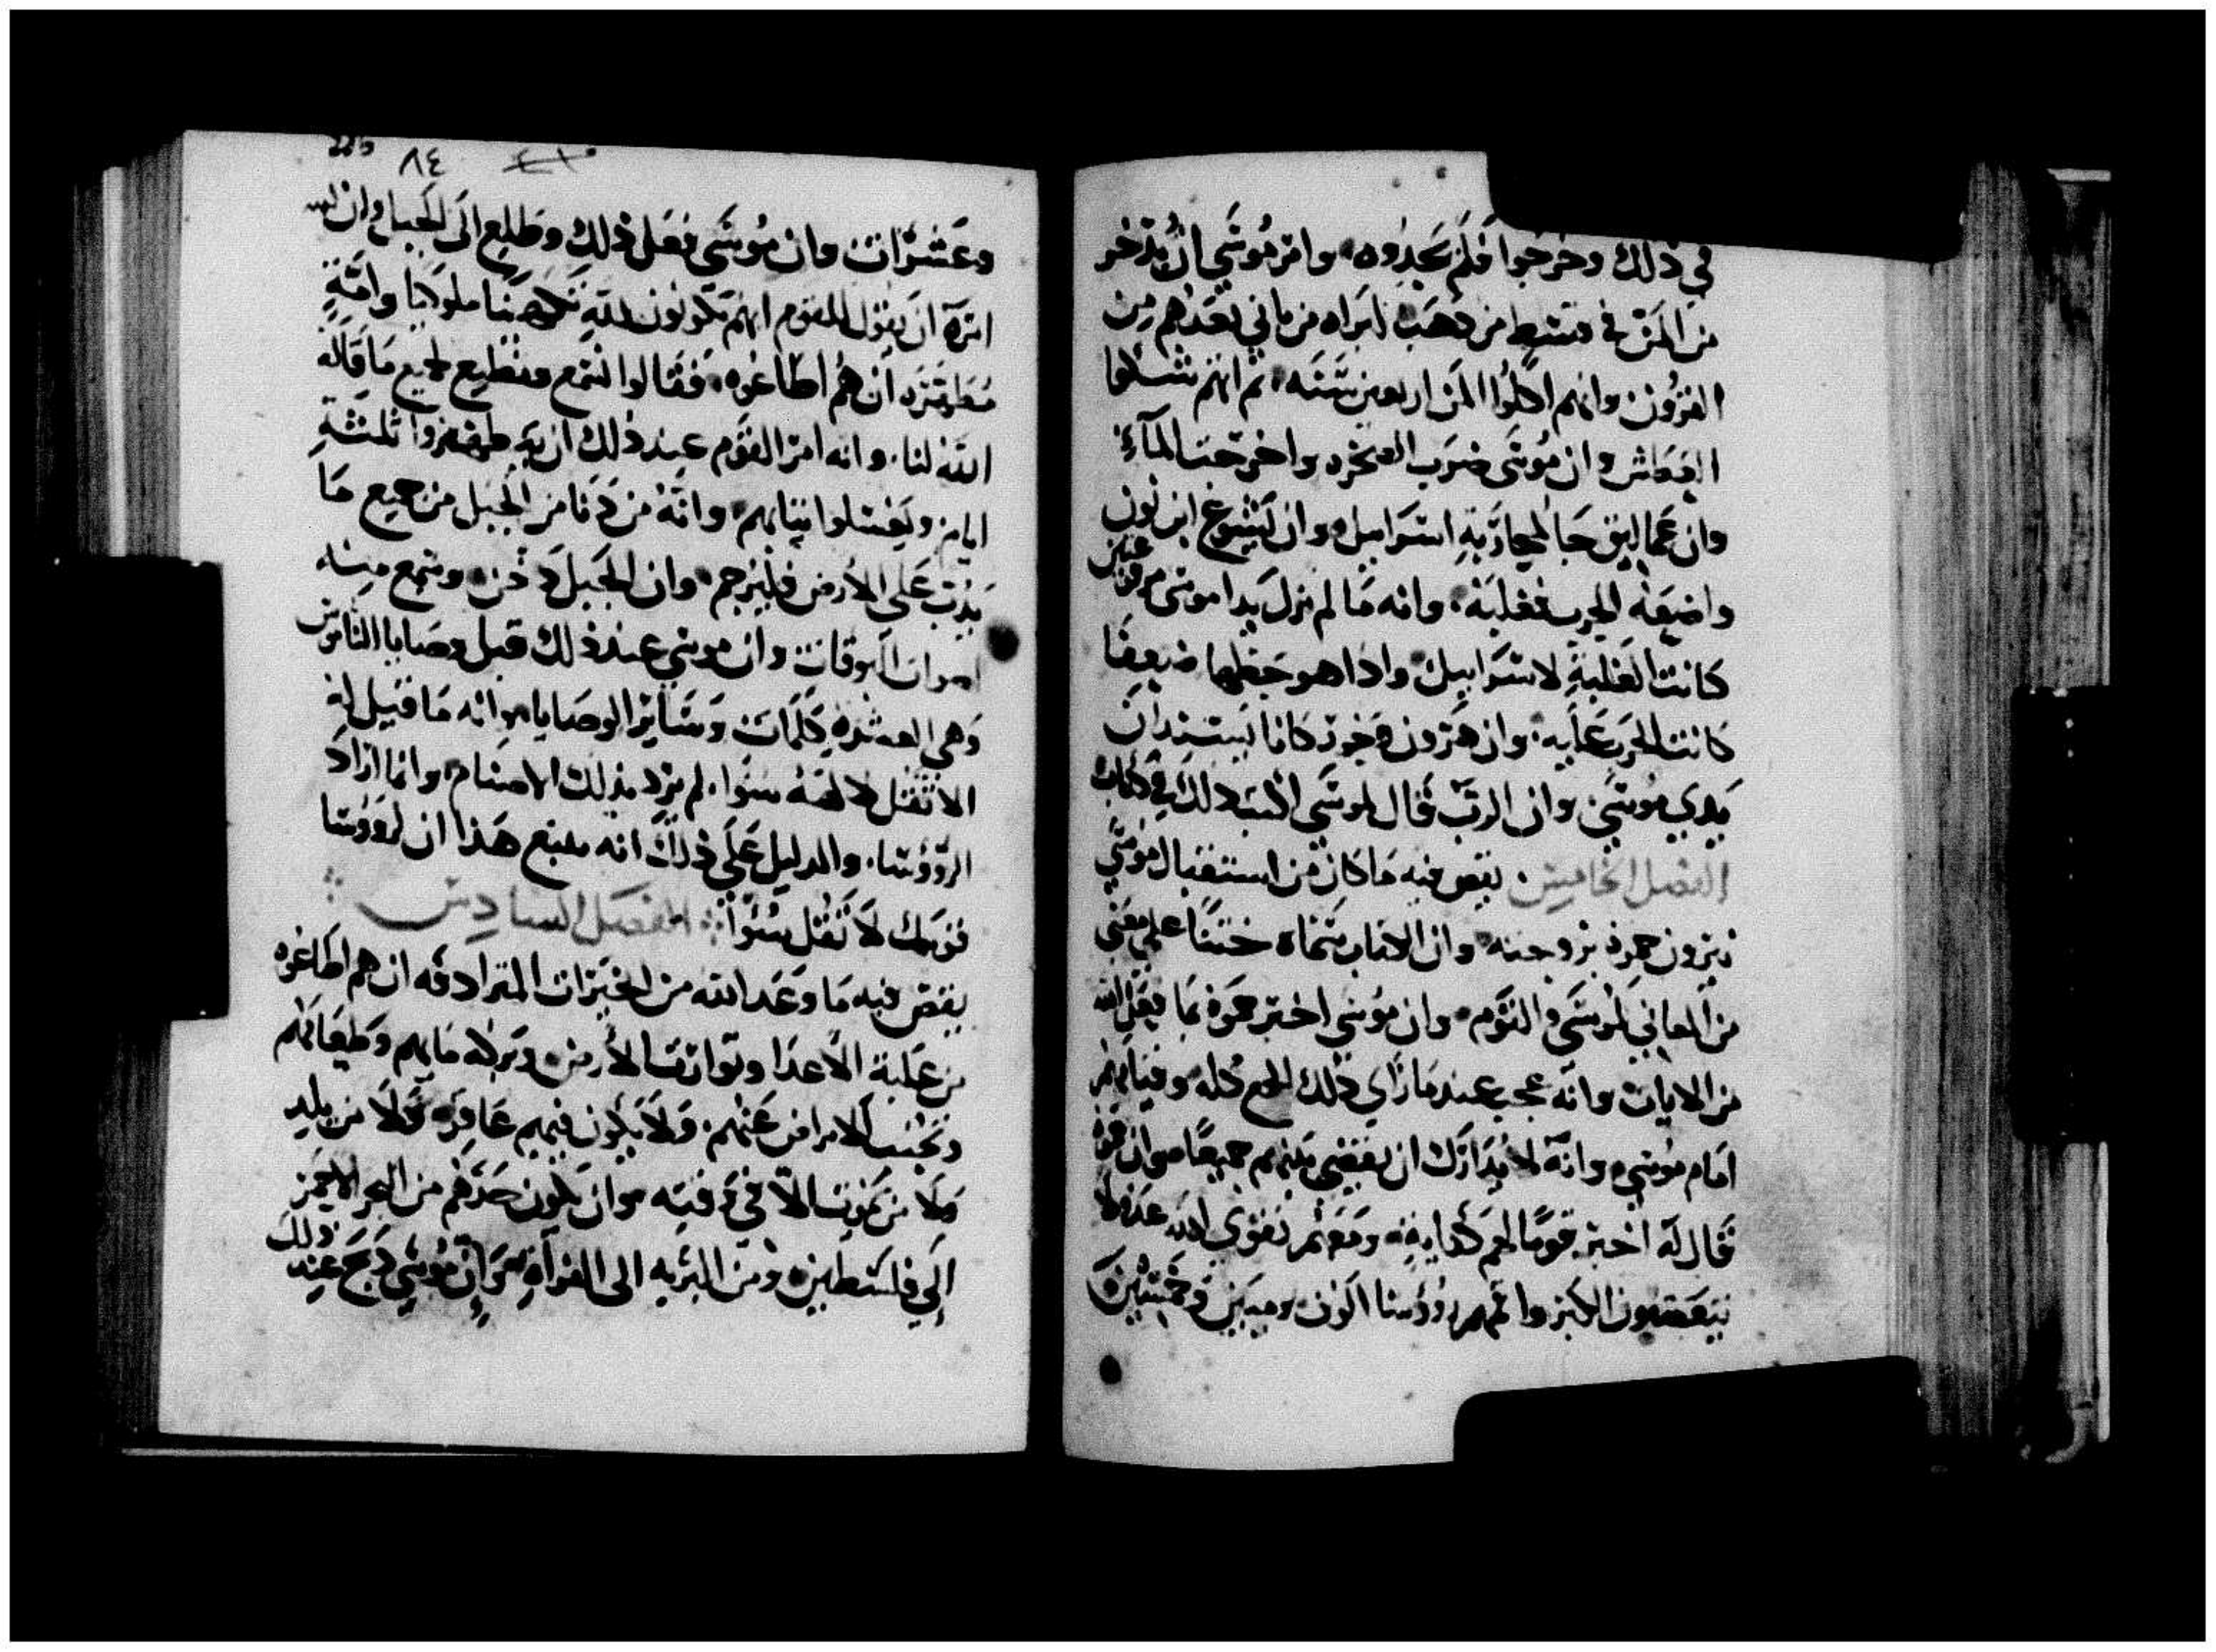 في ذلك وخرجوا فلم يجدوه، وامر موسي ان يدخر
من المن في قسط من ذهب ليراه من ياتي بعدهم من
القرون وانهم اكلوا المن اربعين سنه، ثم انهم شكوا
العطش وان موسى ضرب الصخره واخرجت المآء
وان عماليق جا لمحاربة اسراييل وان يشوع ابن نون
واضعه الحرب فغلبه، وانه ما لم تزل يدا موسى مرفوعتين
كانت الغلبة لاسراييل، واذا هو حطهما ضعيفا
كانت الحرب عليه، وان هرون وحور كانا يسندان
يدي موسي، وان الرب قال لموسي اكتب ذلك في كتاب
الفصل الخامس، يقص فيه ما كان من استقبال موسي
يثرون حموه بزوجته وان الكتاب سماه ختنًا على معني
من المعاني لموسي والقوم، وان موسي اخبر حموه بما فعل الله
من الايات وانه عجب عند ما راي ذلك الجمع كله وقيامهم
امام موسي وانه لا يدارك ان يقضي بينهم جميعًا، وان حموه
قال له اختر قومًا لهم كفايه ومعهم تقوى الله عدولا
يبغضون الكبر واقمهم رووسا الوف وميين وخمسين
٨٤
وعشرات وان موسى فعل ذلك وطلع الى الجبل وان الله
امره ان يقول للقوم انهم يكونون لله كهنا ملوكا وامة
مطهره ان هم اطاعوه، فقالوا نسمع ونطيع لجميع ما قاله
الله لنا، وانه امر القوم عند ذلك ان يتطهروا ثلثة
ايام ويغسلوا ثيابهم، وانه من دنا من الجبل من جميع ما
يدب على الارض فليرجم، وان الجبل دخن، وسمع منه
اصوات البوقات وان موسي عند ذلك قبل وصايا الناموس
وهي العشره كلمات وسائر الوصايا، وانه ما قيل له
الا تقل لالهة سوا، لم يرد بذلك الاصنام، وانما اراد
الرووسا، والدليل على ذلك انه يتبع هذا ان لرووسا
قومك لا تقل سوًا ⁘ الفصل السادس ⁘
يقص فيه ما وعد الله من الخيرات المترادفه ان هم اطاعوه
من غلبة الاعدا وتوارت الارض وبركه مايهم وطعامهم
وتجنب الامراض عنهم، ولا يكون فيهم عاقره ولا من يلد
ولا من يموت الا في وقته، وان يكون حدهم من البحر الاحمر
الى فلسطين ومن البريه الى الفراه، وان موسي رجع عند ذلك